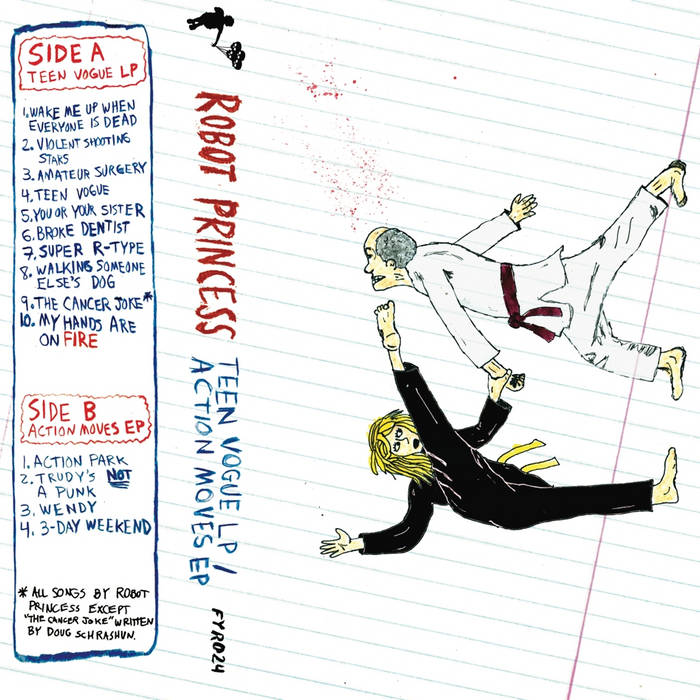 SIDE A
TEEN VOGUE LP
1. WAKE ME UP WHEN
EVERYONE IS DEAD
2. VIOLENT SHOOTING
STARS
3. AMATEUR SURGERY
4. TEEN VOGUE
5. YOU OR YOUR SISTER
6. BROKE DENTIST
7. SUPER R-TYPE
8. WALKING SOMEONE
ELSE'S DOG
9. THE CANCER JOKE*
10. MY HANDS ARE
ON FIRE
SIDE B
ACTION MOVES EP
1. ACTION PARK
2. TRUDY'S NOT
A PUNK
3. WENDY
4. 3-DAY WEEKEND
* ALL SONGS BY ROBOT
PRINCESS EXCEPT
"THE CANCER JOKE" WRITTEN
BY DOUG SCHRASHUN.
ROBOT PRINCESS
TEEN VOGUE LP /
ACTION MOVES EP
FYR024